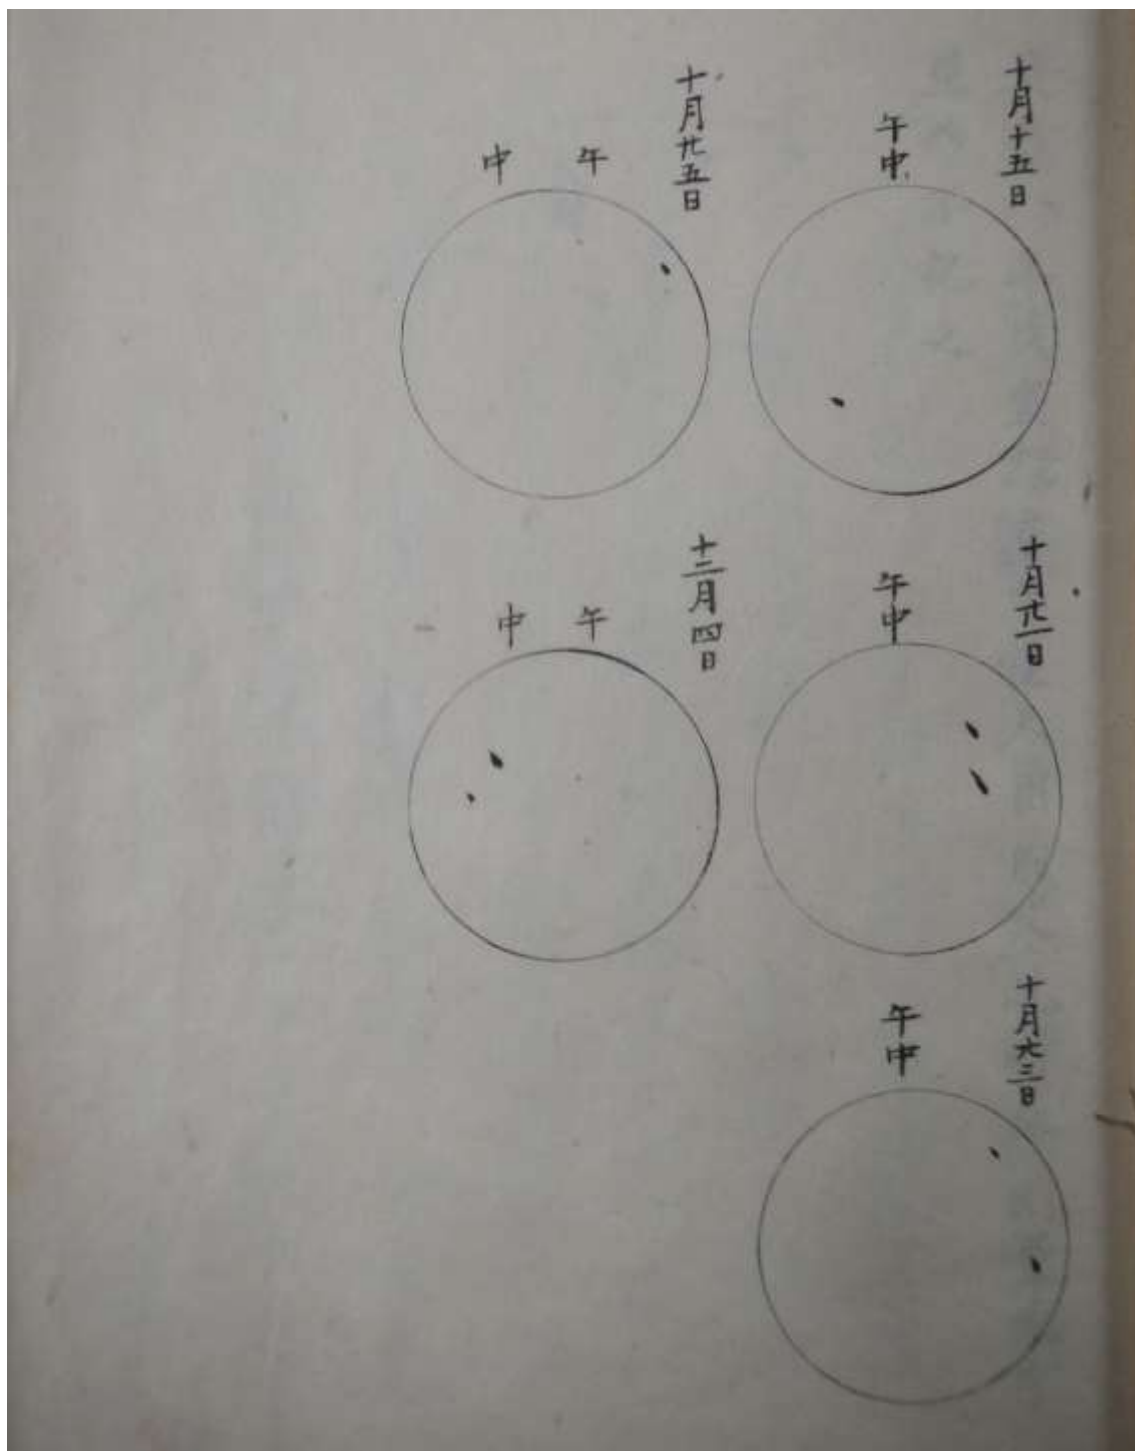 十月十五日
午中
十月廿一日
午中
十月廿三日
午中
十月廿五日
午中
十二月四日
午中